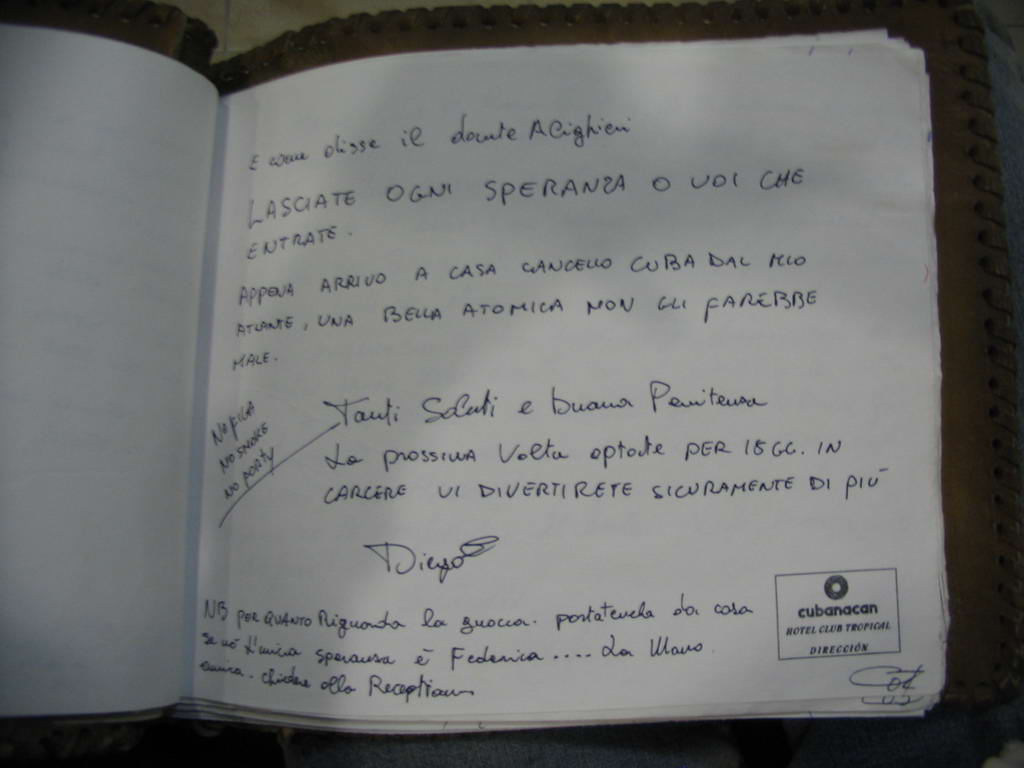 E come disse il dante Alighieri
LASCIATE OGNI SPERANZA O VOI CHE
ENTRATE.
APPENA ARRIVO A CASA CANCELLO CUBA DAL MIO
ATLANTE, UNA BELLA ATOMICA NON GLI FAREBBE
MALE.
NO FIGA
NO SMOKE
NO PARTY
Tanti Saluti e buona Penitenza
La prossima Volta optate PER 15 GG. IN
CARCERE VI DIVERTIRETE SICURAMENTE DI PIÙ
Diego
NB PER QUANTO Riguarda la gnocca. portatevela da casa
se no L'unica speranza è Federica .... La Mano
amica. chiedere alla Reception
cubanacan
HOTEL CLUB TROPICAL
DIRECCIÓN